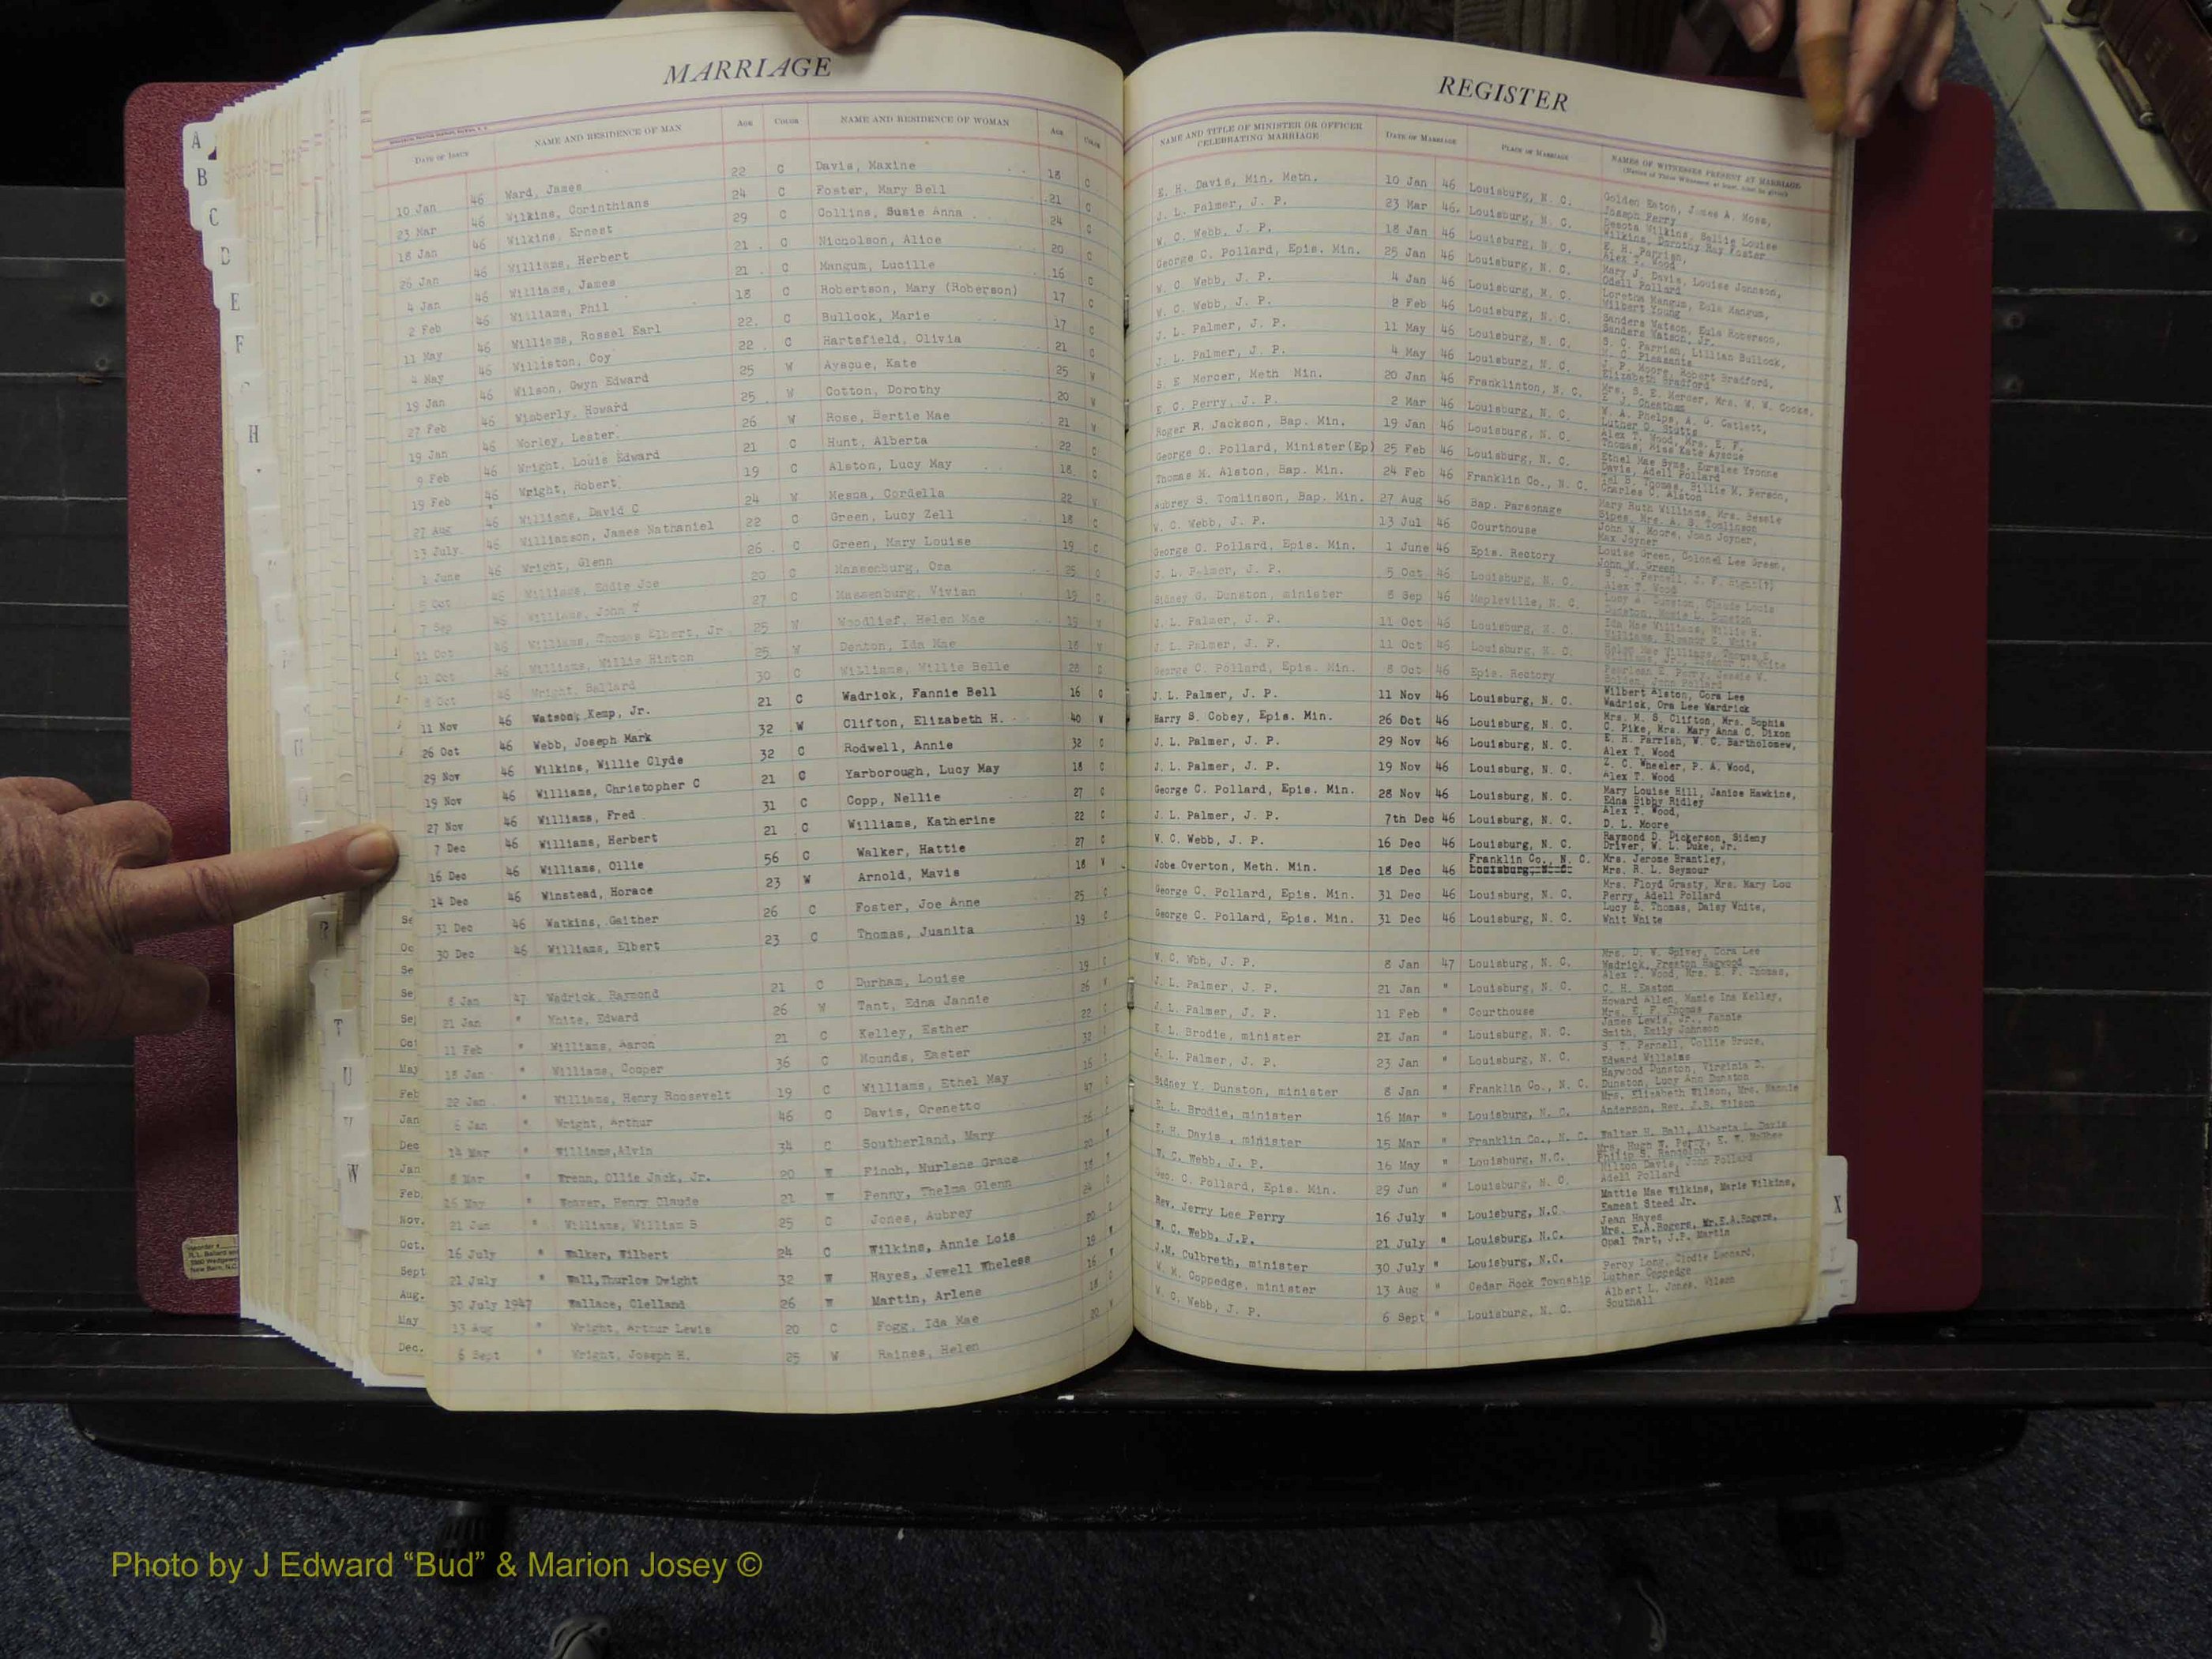 MARRIAGE
REGISTER
DATE OF ISSUE NAME AND RESIDENCE OF MAN AGE COLOR NAME AND RESIDENCE OF WOMAN AGE COLOR
NAME AND TITLE OF MINISTER OR OFFICER CELEBRATING MARRIAGE DATE OF MARRIAGE PLACE OF MARRIAGE NAMES OF WITNESSES PRESENT AT MARRIAGE
10 Jan 46 Ward, James 22 C Davis, Maxine 18 C E. H. Davis, Min. Meth. 10 Jan 46 Louisburg, N. C. Golden Eaton, James A. Moss, Joseph Perry
23 Mar 46 Wilkins, Corinthians 24 C Foster, Mary Bell 21 C J. L. Palmer, J. P. 23 Mar 46. Louisburg, N. C. Wilkins, Sallie Louise Wilkins, Dorothy Ray Foster
18 Jan 46 Wilkins, Ernest 29 C Collins, Susie Anna 24 C W. C. Webb, J. P. 18 Jan 46 Louisburg, N. C. E. H. Parrish, Alex T. Wood
26 Jan 46 Williams, Herbert 21 C Nicholson, Alice 20 C George C. Pollard, Epis. Min. 25 Jan 46 Louisburg, N. C. Mary J. Davis, Louise Johnson, Odell Pollard
4 Jan 46 Williams, James 21 C Mangum, Lucille 16 C W. C Webb, J. P. 4 Jan 46 Louisburg, N. C. Loretha Mangum, Eula Mangum, Wilbert Young
2 Feb 46 Williams, Phil 18 C Robertson, Mary (Roberson) 17 C W. C. Webb, J. P. 2 Feb 46 Louisburg, N. C. Sanders Watson, Eula Roberson, Sanders Watson, Jr.
11 May 46 Williams, Rossel Earl 22. C Bullock, Marie 17 C J. L. Palmer, J. P. 11 May 46 Louisburg, N. C. S. C. Parrish, Lillian Bullock, Pleasants
4 May 46 Williston, Coy 22 C Hartsfield, Olivia 21 C J. L. Palmer, J. P. 4 May 46 Louisburg, N. C. Moore, Robert Bradford, Elizabeth Bradford
19 Jan 46 Wilson, Gwyn Edward 25 W Ayscue, Kate 25 W S. E Mercer, Meth Min. 20 Jan 46 Franklinton, N. C. Mrs. S. E. Mercer, Mrs. W. W. Cooke, E. J. Cheatham
27 Feb 46 Wimberly, Howard 25 W Cotton, Dorothy 20 W E. C. Perry, J. P. 2 Mar 46 Louisburg, N. C. W. A. Phelps, A. G. Catlett, Luther G. Stutts
19 Jan 46 Worley, Lester 26 W Rose, Bertie Mae 21 W Roger R. Jackson, Bap. Min. 19 Jan 46 Louisburg, N. C. Alex T. Wood, Mrs. E. F. Thomas, Miss Kate Ayscue
9 Feb 46 Wright, Louis Edward 21 C Hunt, Alberta 22 C George C. Pollard, Minister(Ep) 25 Feb 46 Louisburg, N. C. Ethel Mae Syms, Euralee Yvonne Davis, Adell Pollard
19 Feb 46 Wright, Robert 19 C Alston, Lucy May 18. C Thomas M. Alston, Bap. Min. 24 Feb 46 Franklin Co., N. C. B. Thomas, Billie M. Person, Charles C. Alston
27 Aug 46 Williams, David C 24 W Cordella 22 W Aubrey S. Tomlinson, Bap. Min. 27 Aug 46 Bap. Parsonage Mary Ruth Williams, Mrs. Bessie Sipes, Mrs. A. S. Tomlinson
13 July 46 Williamson, James Nathaniel 22 C Green, Lucy Zell 18 C W. C. Webb, J. P. 13 Jul 46 Courthouse John W. Moore, Joan Joyner, Max Joyner
1 June 46 Wright, Glenn 26 C Green, Mary Louise 19 C George C. Pollard, Epis. Min. 1 June 46 Epis. Rectory Louise Green, Colonel Lee Green, John W. Green
5 Oct 46 Williams, Eddie Joe 20 C Massenburg, Oza 25 C J. L. Palmer, J. P. 5 Oct 46 Louisburg, N. C. Alex T. Wood
7 Sep 46 Williams, John T 27 C Massenburg, Vivian 19 C Sidney G. Dunston, minister 8 Sep 46 Mapleville, N. C. Lucy A. Dunston, Claude Louis Dunston, Dunston
11 Oct 46 Williams, Thomas Elbert, Jr. 25 W Woodlief, Helen Mae 19 W J. L. Palmer, J. P. 11 Oct 46 Louisburg, N. C. Ida Mae Williams, Willie H. Williams, Eleanor C. White
11 Oct 46 Williams, Willie Hinton 25 W Denton, Ida Mae 18 W J. L. Palmer, J. P. 11 Oct 46 Louisburg, N. C. Helen Mae Williams, Thomas E. Williams, Jr., Eleanor C. White
8 Oct 46 Wright, Ballard 30 C Williams, Willie Belle 28 C George C. Pollard, Epis. Min. 8 Oct 46 Epis. Rectory Perry, Jessie W. Bolden, John Pollard
11 Nov 46 Watson, Kemp, Jr. 21 C Wadrick, Fannie Bell 16 C J. L. Palmer, J. P. 11 Nov 46 Louisburg, N. C. Wilbert Alston, Cora Lee Wadrick, Ora Lee Wardrick
26 Oct 46 Webb, Joseph Mark 32 W Clifton, Elizabeth H. 40 W Harry S. Cobey, Epis. Min. 26 Oct 46 Louisburg, N. C. Mrs. M. S. Clifton, Mrs. Sophia C. Pike, Mrs. Mary Anna C. Dixon
29 Nov 46 Wilkins, Willie Clyde 32 C Rodwell, Annie 32 C J. L. Palmer, J. P. 29 Nov 46 Louisburg, N. C. E. H. Parrish, W. C. Bartholomew, Alex T. Wood
19 Nov 46 Williams, Christopher C 21 C Yarborough, Lucy May 18 C J. L. Palmer, J. P. 19 Nov 46 Louisburg, N. C. Z. C. Wheeler, P. A. Wood, Alex T. Wood
27 Nov 46 Williams, Fred 31 C Copp, Nellie 27 C George C. Pollard, Epis. Min. 28 Nov 46 Louisburg, N. C. Mary Louise Hill, Janice Hawkins, Edna Bibby Ridley
7 Dec 46 Williams, Herbert 21 C Williams, Katherine 22 C J. L. Palmer, J. P. 7th Dec 46 Louisburg, N. C. Alex T. Wood, D. L. Moore
16 Dec 46 Williams, Ollie 56 C Walker, Hattie 27 C W. C. Webb, J. P. 16 Dec 46 Louisburg, N. C. Raymond D. Dickerson, Sideny Driver, W. L. Duke, Jr.
14 Dec 46 Winstead, Horace 23 W Arnold, Mavis 18 W Jobe Overton, Meth. Min. 18 Dec 46 Franklin Co., N. C. Louisburg, N. C. Mrs. Jerome Brantley, Mrs. R. L. Seymour
31 Dec 46 Watkins, Gaither 26 C Foster, Joe Anne 25 C George C. Pollard, Epis. Min. 31 Dec 46 Louisburg, N. C. Mrs. Floyd Grasty, Mrs. Mary Lou Perry, Adell Pollard
30 Dec 46 Williams, Elbert 23 C Thomas, Juanita 19 C George C. Pollard, Epis. Min. 31 Dec 46 Louisburg, N. C. Lucy E. Thomas, Daisy White, Whit White
8 Jan 47 Wadrick, Raymond 21 C Durham, Louise 19 C W. C. Wbb, J. P. 8 Jan 47 Louisburg, N. C. Mrs. D. W. Spivey, Cora Lee Wadrick, Preston Hagwood
21 Jan " White, Edward 26 W Tant, Edna Jannie 26 W J. L. Palmer, J. P. 21 Jan " Louisburg, N. C. Alex T. Wood, Mrs. E. F. Thomas, C. H. Easton
11 Feb " Williams, Aaron 21 C Kelley, Esther 22 C J. L. Palmer, J. P. 11 Feb " Courthouse Howard Allen, Mamie Ina Kelley, Mrs. E. F. Thomas
18 Jan " Williams, Cooper 36 C Mounds, Easter 32 C E. L. Brodie, minister 21 Jan " Louisburg, N. C. James Lewis, Jr., Fannie Smith, Emily Johnson
22 Jan " Williams, Henry Roosevelt 19 C Williams, Ethel May 16 C J. L. Palmer, J. P. 23 Jan " Louisburg, N. C. S. T. Pernell, Collie Bruce, Edward Willaims
6 Jan " Wright, Arthur 46 C Davis, Orenetto 47 C Sidney Y. Dunston, minister 8 Jan " Franklin Co., N. C. Haywood Dunston, Virginia D. Dunston, Lucy Ann Dunston
14 Mar " Williams,Alvin 34 C Southerland, Mary 26 C E. L. Brodie, minister 16 Mar " Louisburg, N. C. Mrs. Elizabeth Wilson, Mrs. Nannie Anderson, Rev. J.B. Wilson
8 Mar " Wrenn, Ollie Jack, Jr. 20 W Finch, Nurlene Grace 20 W E. H. Davis , minister 15 Mar " Franklin Co., N. C. Walter H. Ball, Alberta L. Davis
" Weaver, Henry Claude 21 W Penny, Thelma Glenn 18 W W. C. Webb, J. P. 16 May " Louisburg, N.C. Mrs. Hugh W. Perry, E. W. McGhee Philip S. Randolph
21 Jun " Williams, William B 25 C Jones, Aubrey 24 C Geo. C. Pollard, Epis. Min. 29 Jun " Louisburg, N. C. Wilson Davis, John Pollard Adell Pollard
16 July " Walker, Wilbert 24 C Wilkins, Annie Lois 20 C Rev. Jerry Lee Perry 16 July " Louisburg, N.C. Mattie Mae Wilkins, Marie Wilkins, Earnest Steed Jr.
21 July " Wall,Thurlow Dwight 32 W Hayes, Jewell Wheless 19 W W. C. Webb, J.P. 21 July " Louisburg, N.C. Jean Hayes Mrs. E.A.Rogers, Mr.E.A.Rogers,
30 July 1947 Wallace, Clelland 26 W Martin, Arlene 16 W J.M. Culbreth, minister 30 July " Louisburg, N.C. Opal Tart, J.P. Martin
13 Aug " Wright, Arthur Lewis 20 C Fogg, Ida Mae 18 C W. M. Coppedge, minister 13 Aug " Cedar Rock Township Percy Long, Clodie Leonard, Luther Coppedge
6 Sept " Wright, Joseph H. 25 W Raines, Helen 20 W W. C. Webb, J. P. 6 Sept " Louisburg, N. C. Albert L. Jones, Wilson Southall
A
B
C
D
E
F
H
R
T
U
V
W
X
Se
Oc
Se
Se
Se
Oct
May
Feb
Jan
Dec
Jan
Feb
Nov.
Oct.
Sept
Aug.
May
Dec.
Photo by J Edward “Bud” & Marion Josey ©